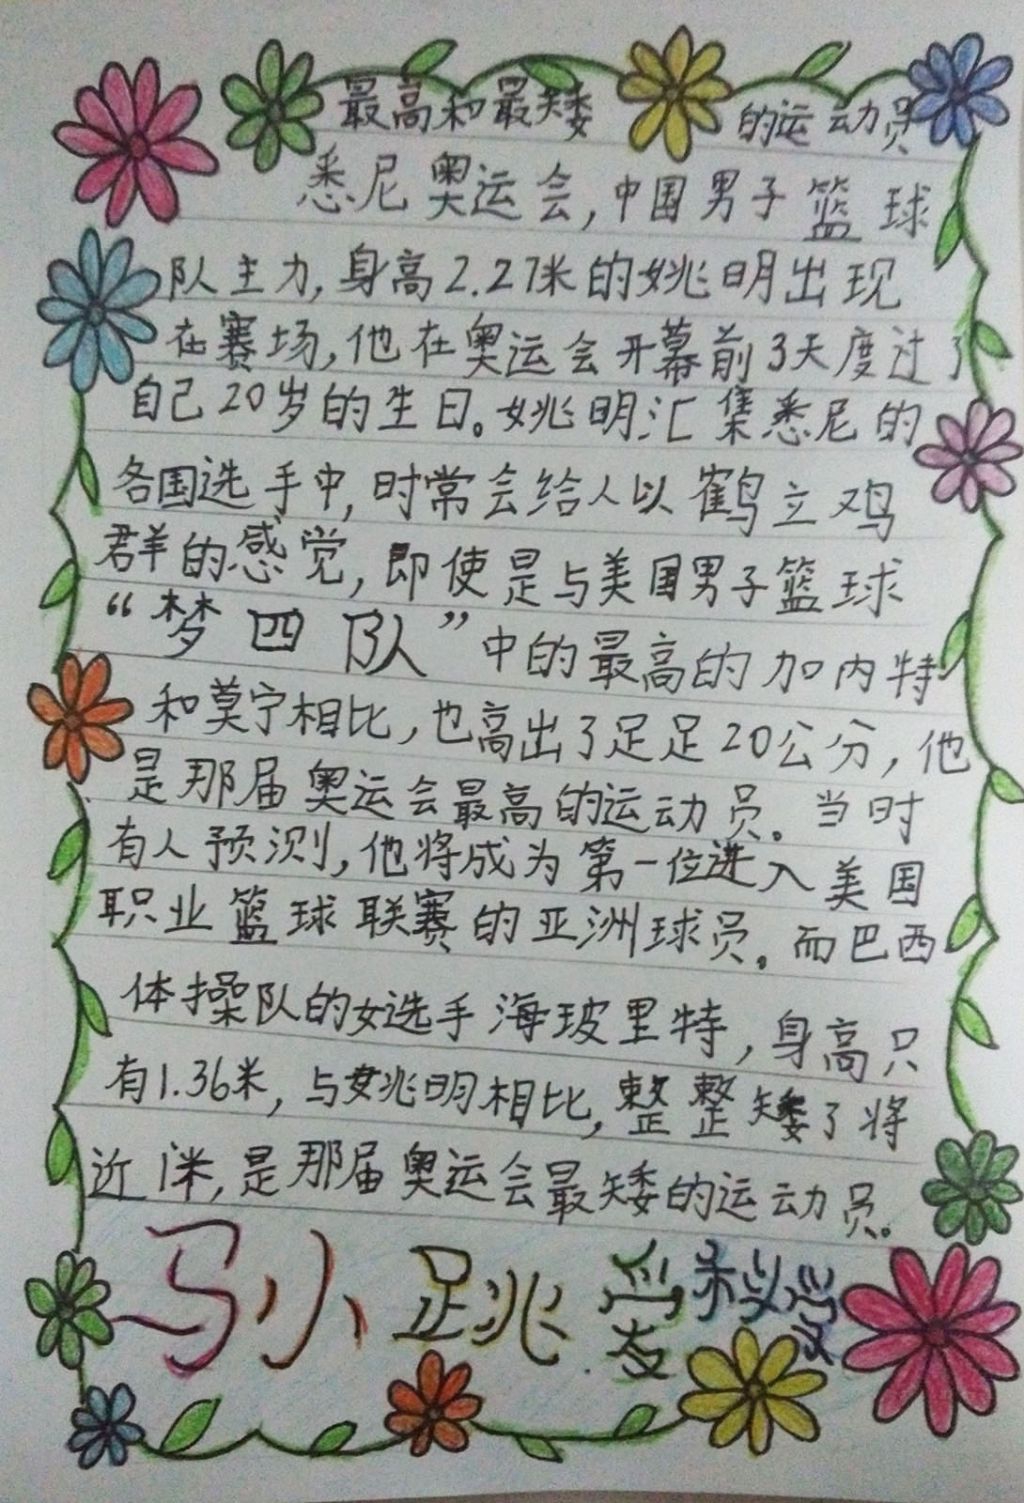 最高和最矮的运动员
悉尼奥运会,中国男子篮球
队主力,身高2.27米的姚明出现
在赛场,他在奥运会开幕前3天度过了
自己20岁的生日。姚明汇集悉尼的
各国选手中,时常会给人以鹤立鸡
群的感觉,即使是与美国男子篮球
“梦四队”中的最高的加内特
和莫宁相比,也高出了足足20公分,他
是那届奥运会最高的运动员。当时
有人预测,他将成为第一位进入美国
职业篮球联赛的亚洲球员。而巴西
体操队的女选手海玻里特,身高只
有1.36米,与姚明相比,整整矮了将
近1米,是那届奥运会最矮的运动员。
马小跳